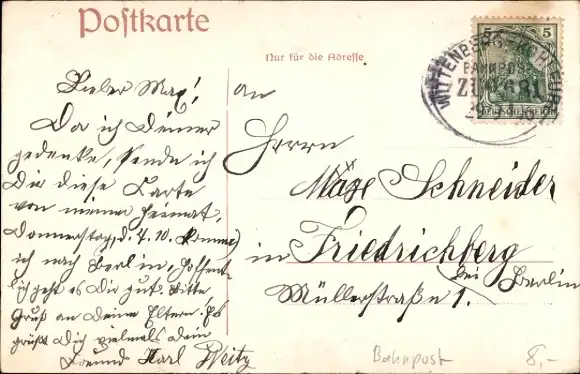 Postkarte
Nur für die Adresse
5 5
WITTENBERGE
BAHNPOST
ZUG 681
DEUTSCHES REICH
Lieber Max!
Da ich Deiner
gedenke, sende ich
Dir diese Carte
von meiner Heimat.
Donnerstag, d. 7.10. komme
ich nach Berlin, hoffent-
lich geht es Dir gut. Bitte
Gruß an Deine Eltern. Es
grüßt Dich vielmals Dein
Freund Karl Weitz
An
Herrn
Maxe Schneider
in Friedrichberg
bei Berlin
Müllerstraße 1.
Bahnpost
8,-